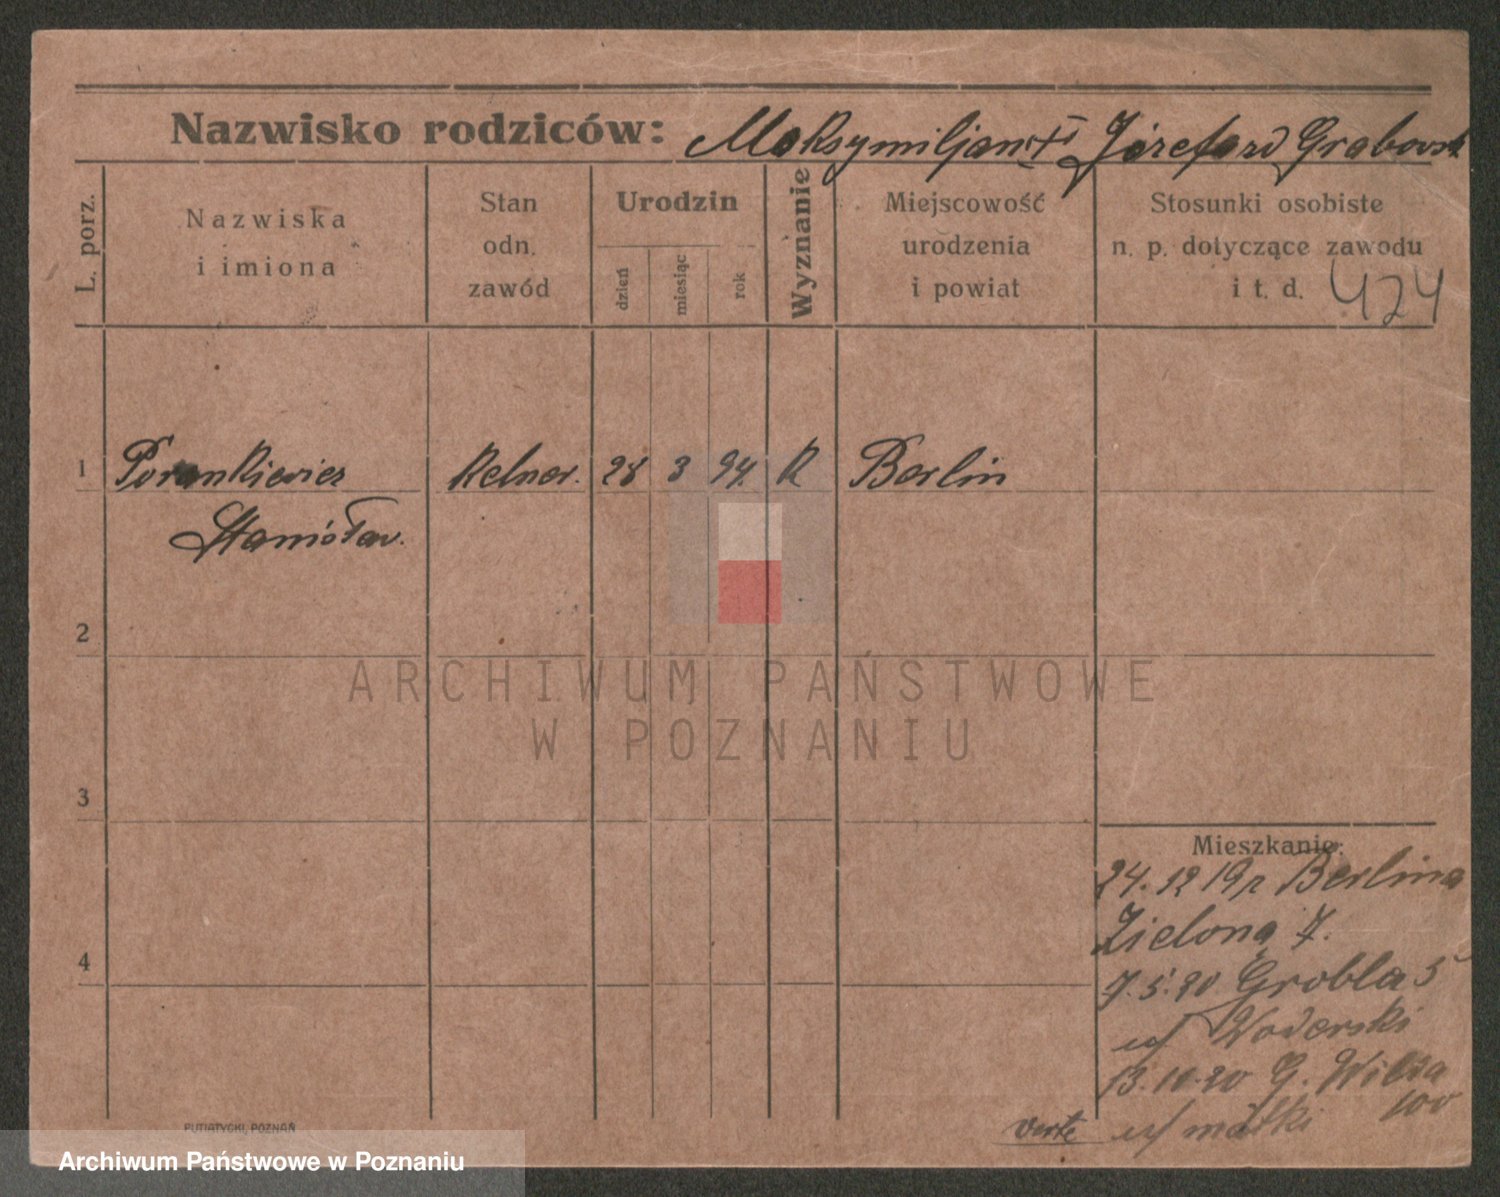 Nazwisko rodziców: Maksymiljan Józefa Grabowsk
L. porz.
Nazwiska
i imiona
Stan
odn.
zawód
Urodzin
dzień
miesiąc
rok
Wyznanie
Miejscowość
urodzenia
i powiat
Stosunki osobiste
n. p. dotyczące zawodu
i t. d. 424
1 Porankiewicz Kelner. 28 3 94. K Berlin
Stanisław.
2
ARCHIWUM PAŃSTWOWE
W POZNANIU
3
Mieszkanie:
24.12 19r Berlina
Zielona 7.
4
7.5.20 Grobla 5
u/ Woderski
13.10.20 G. Wilda
100
verte u/ matki
PUTIATYCKI, POZNAŃ
Archiwum Państwowe w Poznaniu